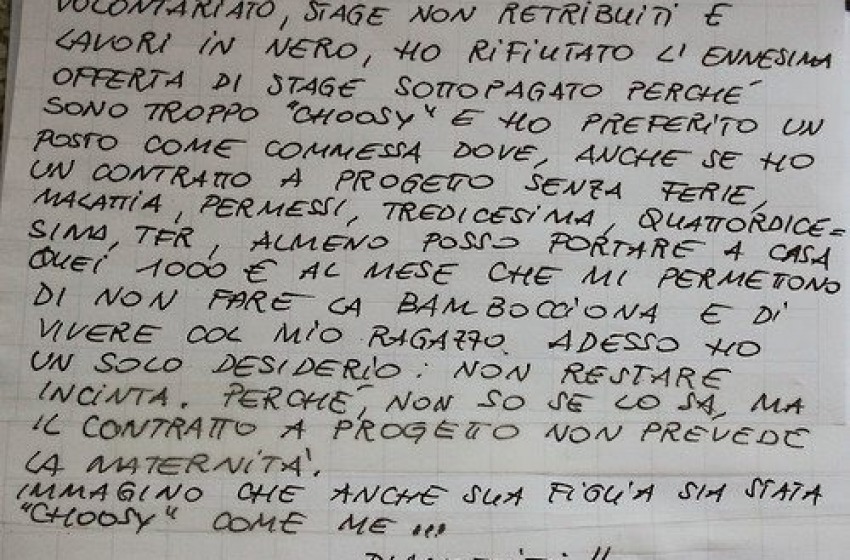 VOLONTARIATO, STAGE NON RETRIBUITI E
LAVORI IN NERO, HO RIFIUTATO L'ENNESIMA
OFFERTA DI STAGE SOTTOPAGATO PERCHÉ
SONO TROPPO "CHOOSY" E HO PREFERITO UN
POSTO COME COMMESSA DOVE, ANCHE SE HO
UN CONTRATTO A PROGETTO SENZA FERIE,
MALATTIA, PERMESSI, TREDICESIMA, QUATTORDICE=
SIMA, TFR, ALMENO POSSO PORTARE A CASA
QUEI 1000 € AL MESE CHE MI PERMETTONO
DI NON FARE LA BAMBOCCIONA E DI
VIVERE COL MIO RAGAZZO. ADESSO HO
UN SOLO DESIDERIO: NON RESTARE
INCINTA. PERCHÉ, NON SO SE LO SA, MA
IL CONTRATTO A PROGETTO NON PREVEDE
LA MATERNITÀ.
IMMAGINO CHE ANCHE SUA FIGLIA SIA STATA
"CHOOSY" COME ME...